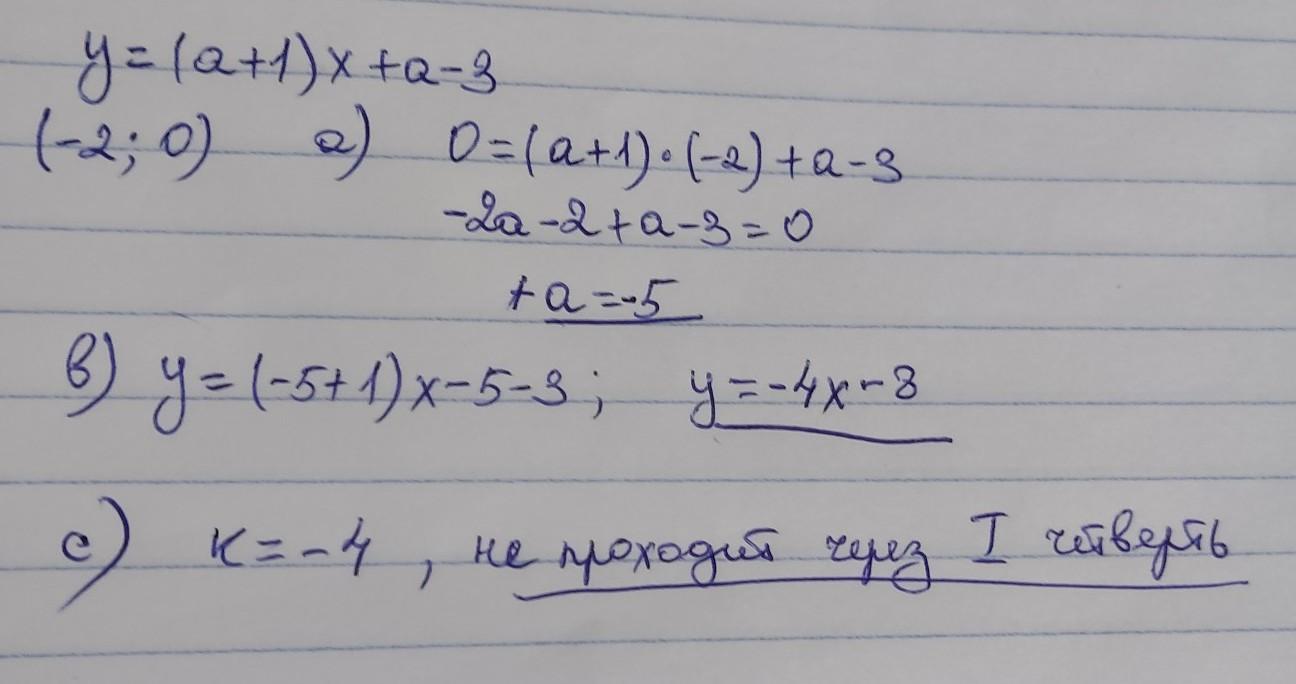 y=(a+1)x+a-3
(-2; 0) a) 0=(a+1)·(-2)+a-3
-2a-2+a-3=0
+a=-5
в) y=(-5+1)x-5-3; y=-4x-8
c) к=-4, не проходит через I четверть